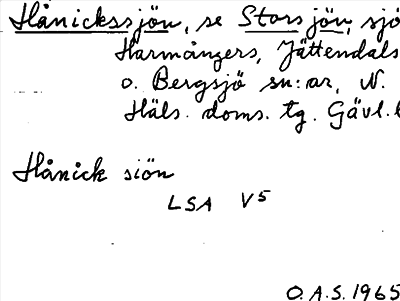 Hånickssjön, se Storsjön, sjö
Harmångers, Jättendals
o. Bergsjö sn:ar, N.
Häls. doms. tg. Gävl. l
Hånick siön
LSA V5
O.A.S. 1965